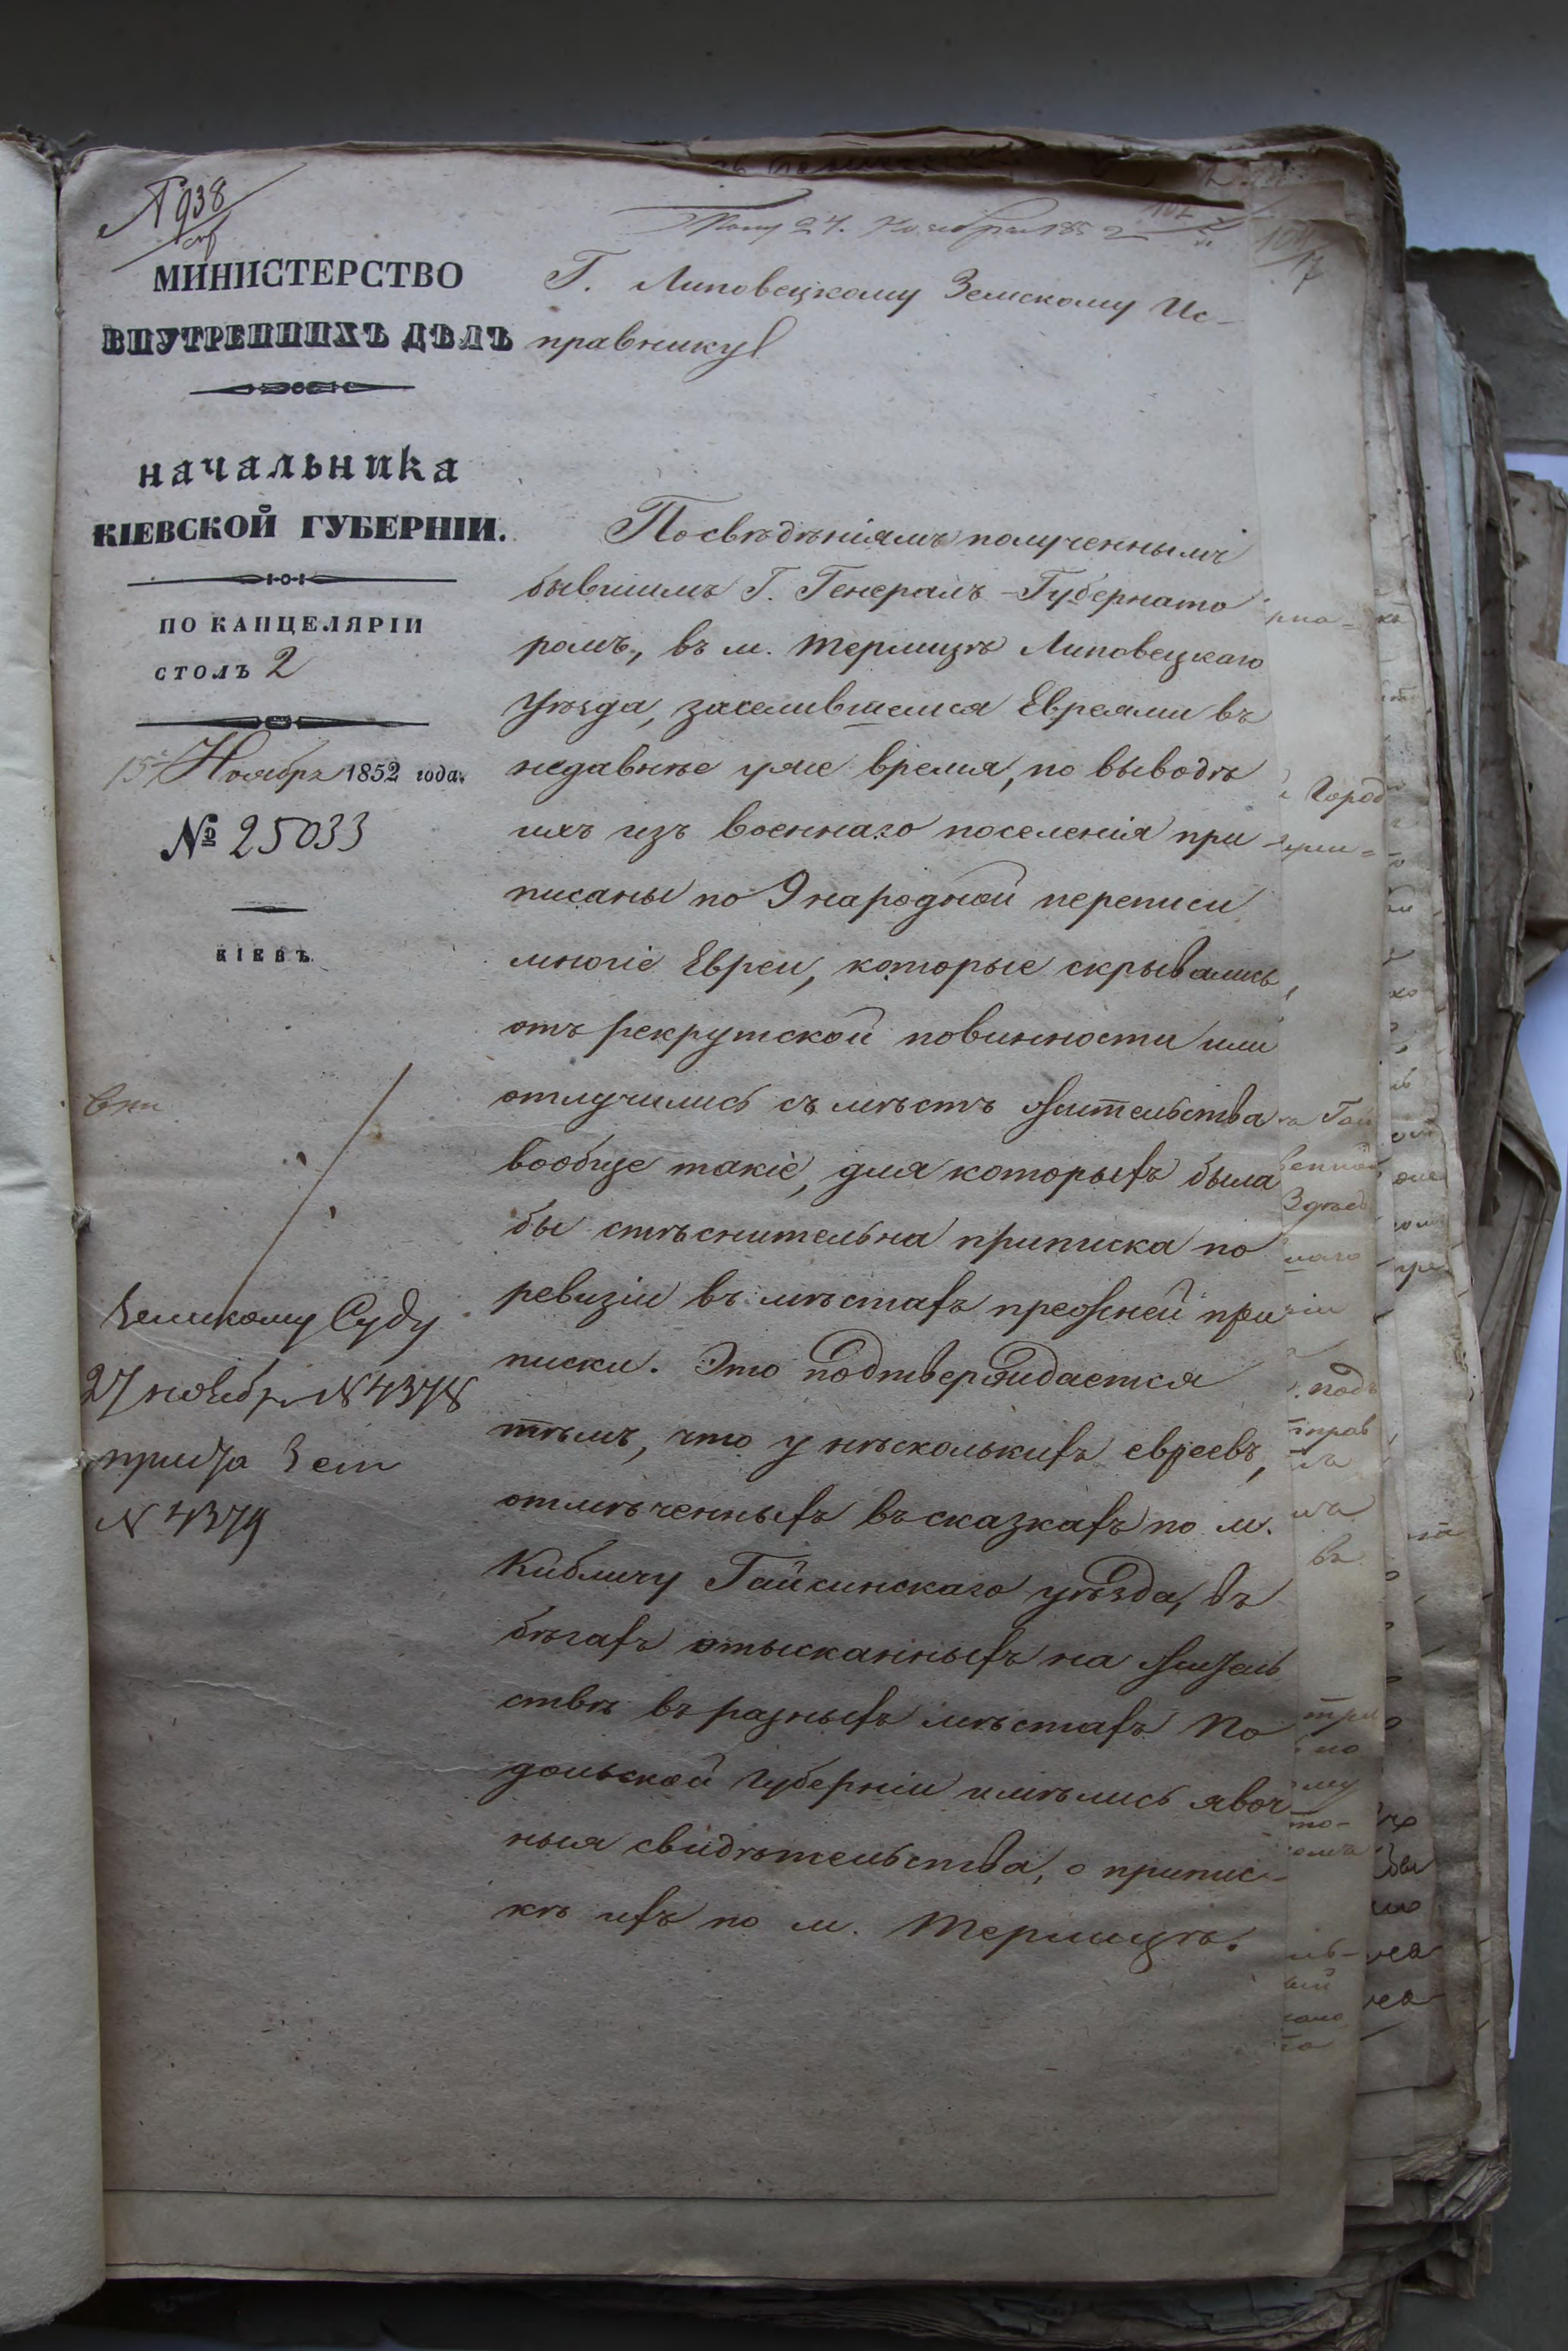 № 938
МИНИСТЕРСТВО
ВНУТРЕННИХЪ ДѢЛЪ
НАЧАЛЬНИКА
КІЕВСКОЙ ГУБЕРНІИ.
ПО КАНЦЕЛЯРІИ
СТОЛЪ 2
15 Ноября 1852 года.
№ 25033
КІЕВЪ.
Земскому Суду
27 ноября № 4378
№ 4379
24. Ноября 1852
Г. Липовецкому Земскому Ис-
правнику
По свѣдѣніямъ полученнымъ
бывшимъ Г. Генералъ-Губернато
ромъ, въ м. Терлицѣ Липовецкаго
уѣзда, заселившемся Евреями въ
недавнѣе уже время, по выводѣ
ихъ изъ военнаго поселенія при
писаны по 9 народной переписи
многіе Евреи, которые скрывались
отъ рекрутской повинности или
отлучились съ мѣстъ жительства
вообще такіе, для которыхъ была
бы стѣснительна приписка по
ревизіи въ мѣстахъ прежней при
писки. Это подтверждается
тѣмъ, что у нѣсколькихъ евреевъ,
отмѣченныхъ въ сказкахъ по м.
Кибличу Гайсинскаго уѣзда, въ
бѣгахъ отысканныхъ на житель
ствѣ въ разныхъ мѣстахъ По
дольской Губерніи имѣлись явоч
ныя свидѣтельства, о припис-
кѣ ихъ по м. Терлицѣ.